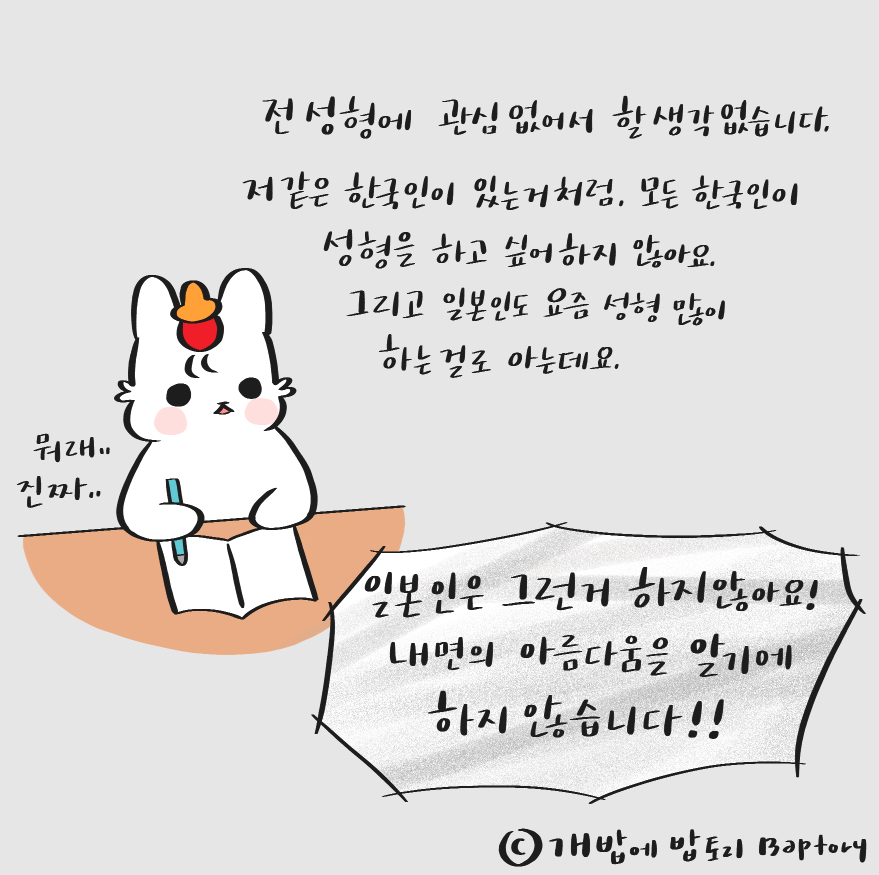 전 성형에 관심 없어서 할 생각 없습니다.
저 같은 한국인이 있는거처럼. 모든 한국인이
성형을 하고 싶어하지 않아요.
그리고 일본인도 요즘 성형 많이
하는 걸로 아는데요.
뭐래..
진짜..
일본인은 그런거 하지않아요!
내면의 아름다움을 알기에
하지 않습니다!!
ⓒ개밥에 밥토리 Baptory